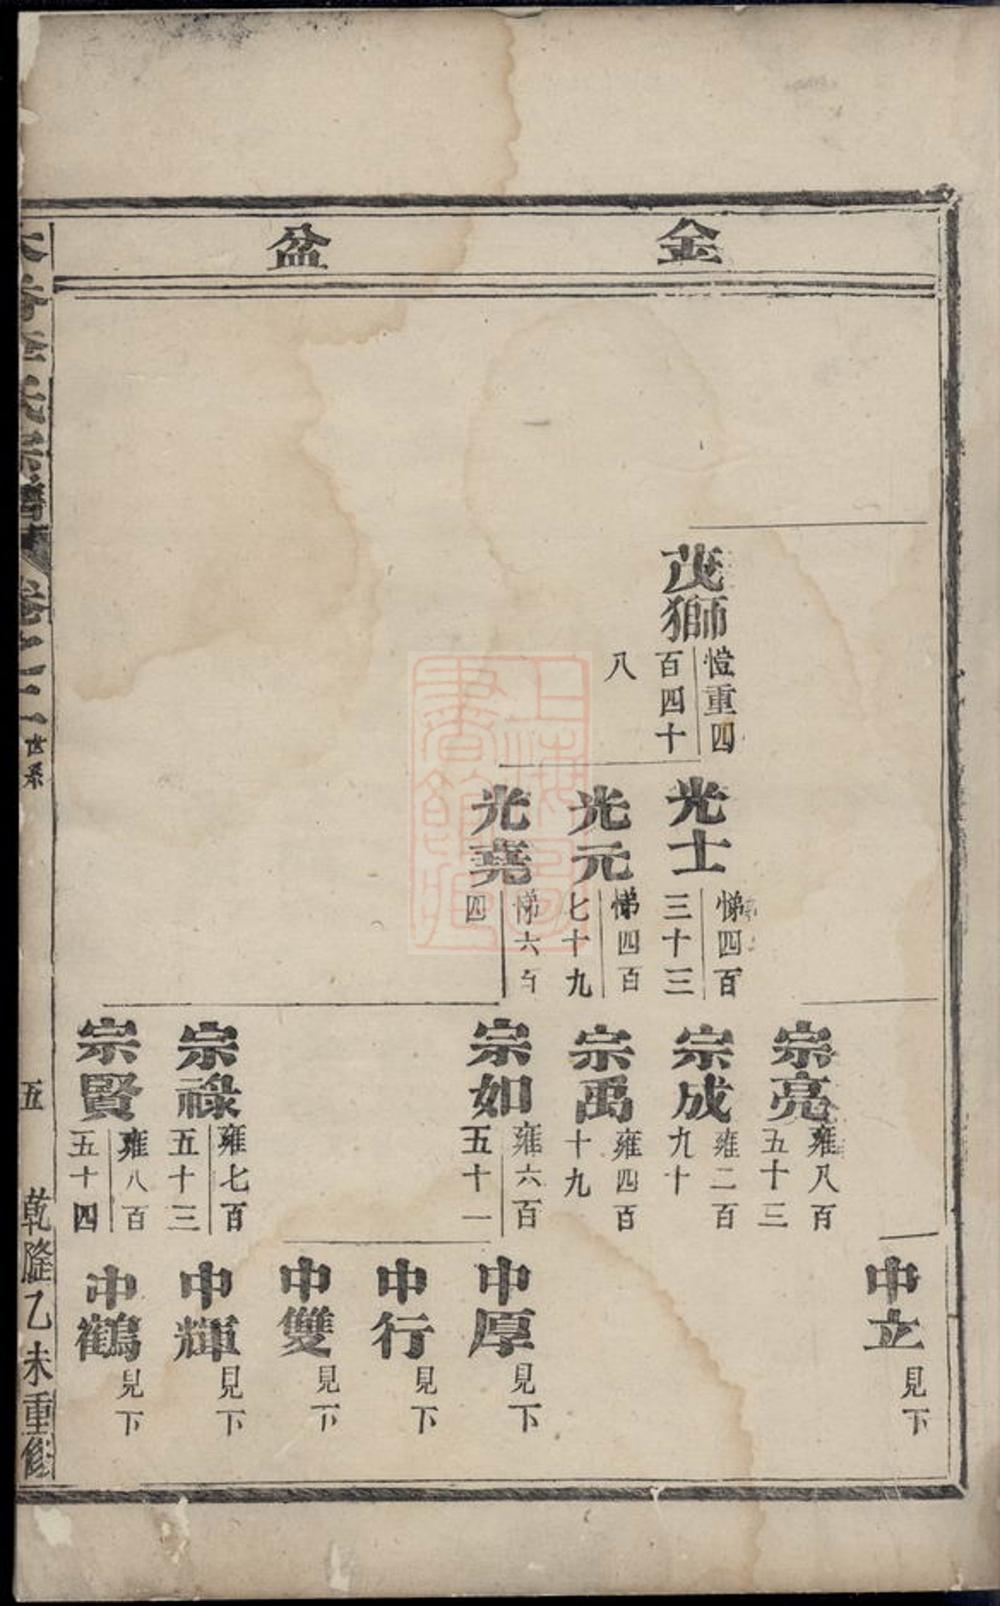 金盆
茂獅
愷重四
百四十
八
光士
悌四百
三十三
光元
悌四百
七十九
光堯
悌六百
四
宗亮
雍八百
五十三
宗成
雍二百
九十
宗禹
雍四百
十九
宗如
雍六百
五十一
宗祿
雍七百
五十三
宗賢
雍八百
五十四
中立
見下
中厚
見下
中行
見下
中雙
見下
中輝
見下
中鶴
見下
世系
五
乾隆乙未重修
上海圖書館藏